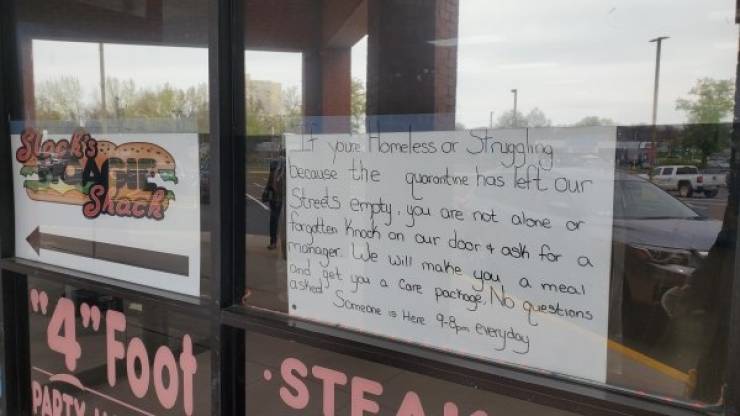 Slack's
HOAGIE
Shack
If youre Homeless or Struggling
because the quarantine has left our
Streets empty, you are not alone or
forgotten Knock on our door & ask for a
manager. We will make you a meal
and get you a care package, No questions
asked. Someone is Here 9-8pm everyday
"4" Foot
PARTY
STEA